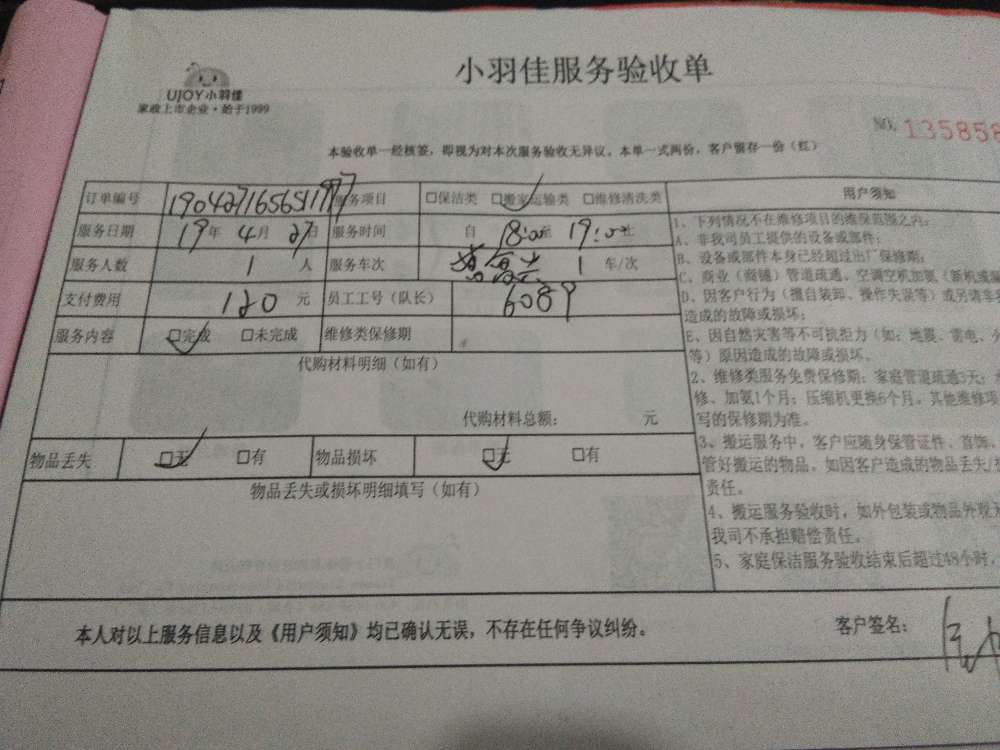 小羽佳服务验收单
UJOY小羽佳
家政上市企业·始于1999
NO. 135858
本验收单一经核签，即视为对本次服务验收无异议。本单一式两份，客户留存一份（红）
订单编号 服务项目 □保洁类 □搬家运输类 □维修清洗类
服务日期 19年 4月 27日 服务时间 自 18:00至 19:00止
服务人数 1 人 服务车次 1 车/次
支付费用 120 元 员工工号（队长） 6089
服务内容 □完成 □未完成 维修类保修期
代购材料明细（如有）
代购材料总额： 元
物品丢失 □无 □有 物品损坏 □无 □有
物品丢失或损坏明细填写（如有）
用户须知
1、下列情况不在维修项目的维保范围之内：
A、非我司员工提供的设备或部件；
B、设备或部件本身已经超过出厂保修期；
C、商业（商铺）管道疏通、空调空机加氨（新机漏氟
D、因客户行为（擅自装卸、操作失误等）或另请非
造成的故障或损坏；
E、因自然灾害等不可抗拒力（如：地震、雷电、
等）原因造成的故障或损坏。
2、维修类服务免费保修期：家庭管道疏通3天；
修、加氨1个月；压缩机更换6个月。其他维修项
写的保修期为准。
3、搬运服务中，客户应随身保管证件、首饰、
管好搬运的物品。如因客户造成的物品丢失/
责任。
4、搬运服务验收时，如外包装或物品外观
我司不承担赔偿责任。
5、家庭保洁服务验收结束后超过48小时，
本人对以上服务信息以及《用户须知》均已确认无误，不存在任何争议纠纷。
客户签名：